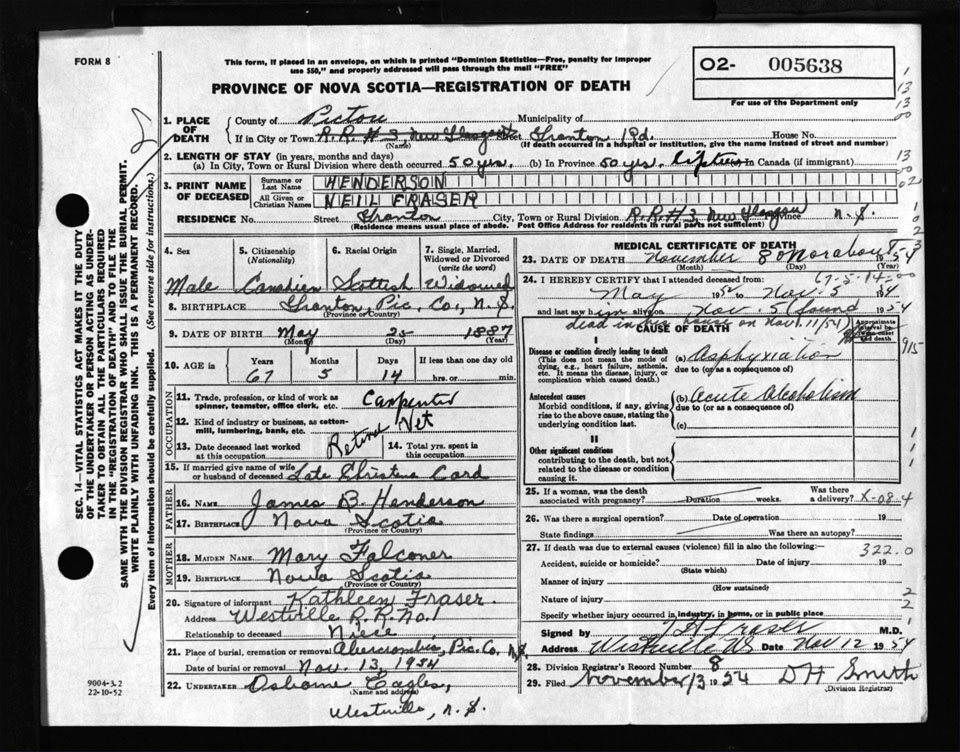 FORM 8
This form, if placed in an envelope, on which is printed "Dominion Statistics—Free, penalty for improper
use $50," and properly addressed will pass through the mail "FREE"
PROVINCE OF NOVA SCOTIA—REGISTRATION OF DEATH
O2- 005638
For use of the Department only
1. PLACE OF DEATH
County of Pictou Municipality of
If in City or Town R.R. # 3 New Glasgow Street Granton Rd. House No.
(Name) (If death occurred in a hospital or institution, give the name instead of street and number)
2. LENGTH OF STAY (in years, months and days)
(a) In City, Town or Rural Division where death occurred 50 yrs. (b) In Province 50 yrs. (c) In Canada (if immigrant)
3. PRINT NAME OF DECEASED
Surname or Last Name HENDERSON
All Given or Christian Names NEIL FRASER
RESIDENCE No. Street Granton City, Town or Rural Division R.R.# 3 New Glasgow Province N.S.
(Residence means usual place of abode. Post Office Address for residents in rural parts not sufficient)
4. Sex Male
5. Citizenship (Nationality) Canadian
6. Racial Origin Scottish
7. Single, Married, Widowed or Divorced (write the word) Widowed
8. BIRTHPLACE Granton, Pic. Co., N.S.
(Province or Country)
9. DATE OF BIRTH May 25 1887
(Month) (Day) (Year)
10. AGE in Years 67 Months 5 Days 14 If less than one day
hrs. or min.
OCCUPATION
11. Trade, profession, or kind of work as
spinner, teamster, office clerk, etc. Carpenter
12. Kind of industry or business, as cotton-
mill, lumbering, bank, etc.
Retired Vet
13. Date deceased last worked
at this occupation
14. Total yrs. spent in
this occupation
15. If married give name of wife
or husband of deceased Late Christena Card
FATHER
16. NAME James B. Henderson
17. BIRTHPLACE Nova Scotia
(Province or Country)
MOTHER
18. MAIDEN NAME Mary Falconer
19. BIRTHPLACE Nova Scotia
(Province or Country)
20. Signature of informant Kathleen Fraser
Address Westville R.R. No. 1
Relationship to deceased Niece
21. Place of burial, cremation or removal Abercrombie, Pic. Co., N.S.
Date of burial or removal Nov. 13, 1954
22. UNDERTAKER Osborne Eagles,
(Name and address)
Westville, N.S.
MEDICAL CERTIFICATE OF DEATH
23. DATE OF DEATH November 8 or about 1954
(Month) (Day) (Year)
67-5-14-00
24. I HEREBY CERTIFY that I attended deceased from:
May 1954 to Nov. 5 1954
and last saw him alive Nov. 5 (found 1954
dead in his house on Nov. 11/54)
CAUSE OF DEATH
Approximate interval between onset and death
I
Disease or condition directly leading to death
(This does not mean the mode of
dying, e.g., heart failure, asthenia,
etc. It means the disease, injury, or
complication which caused death.)
(a) Asphyxiation
due to (or as a consequence of)
Antecedent causes
Morbid conditions, if any, giving
rise to the above cause, stating the
underlying condition last.
(b) Acute Alcoholism
due to (or as a consequence of)
(c)
II
Other significant conditions
contributing to the death, but not
related to the disease or condition
causing it.
25. If a woman, was the death
associated with pregnancy? Duration weeks. Was there
a delivery? X-08-4
26. Was there a surgical operation? Date of operation 19
State findings Was there an autopsy?
27. If death was due to external causes (violence) fill in also the following:— 322.0
Accident, suicide or homicide? Date of injury 19
(State which)
Manner of injury
(How sustained)
Nature of injury
Specify whether injury occurred in industry, in home, or in public place
Signed by Fraser M.D.
Address Westville NS Date Nov 12 1954
28. Division Registrar's Record Number 8
29. Filed November 13 1954 D H Smith
(Division Registrar)
9004-3.2
22-10-52
SEC. 14—VITAL STATISTICS ACT MAKES IT THE DUTY
OF THE UNDERTAKER OR PERSON ACTING AS UNDER-
TAKER TO OBTAIN ALL THE PARTICULARS REQUIRED
IN THE "REGISTRATION OF DEATH" AND TO FILE THE
SAME WITH THE DIVISION REGISTRAR WHO SHALL ISSUE THE BURIAL PERMIT.
WRITE PLAINLY WITH UNFADING INK. THIS IS A PERMANENT RECORD.
Every item of information should be carefully supplied. (See reverse side for instructions.)